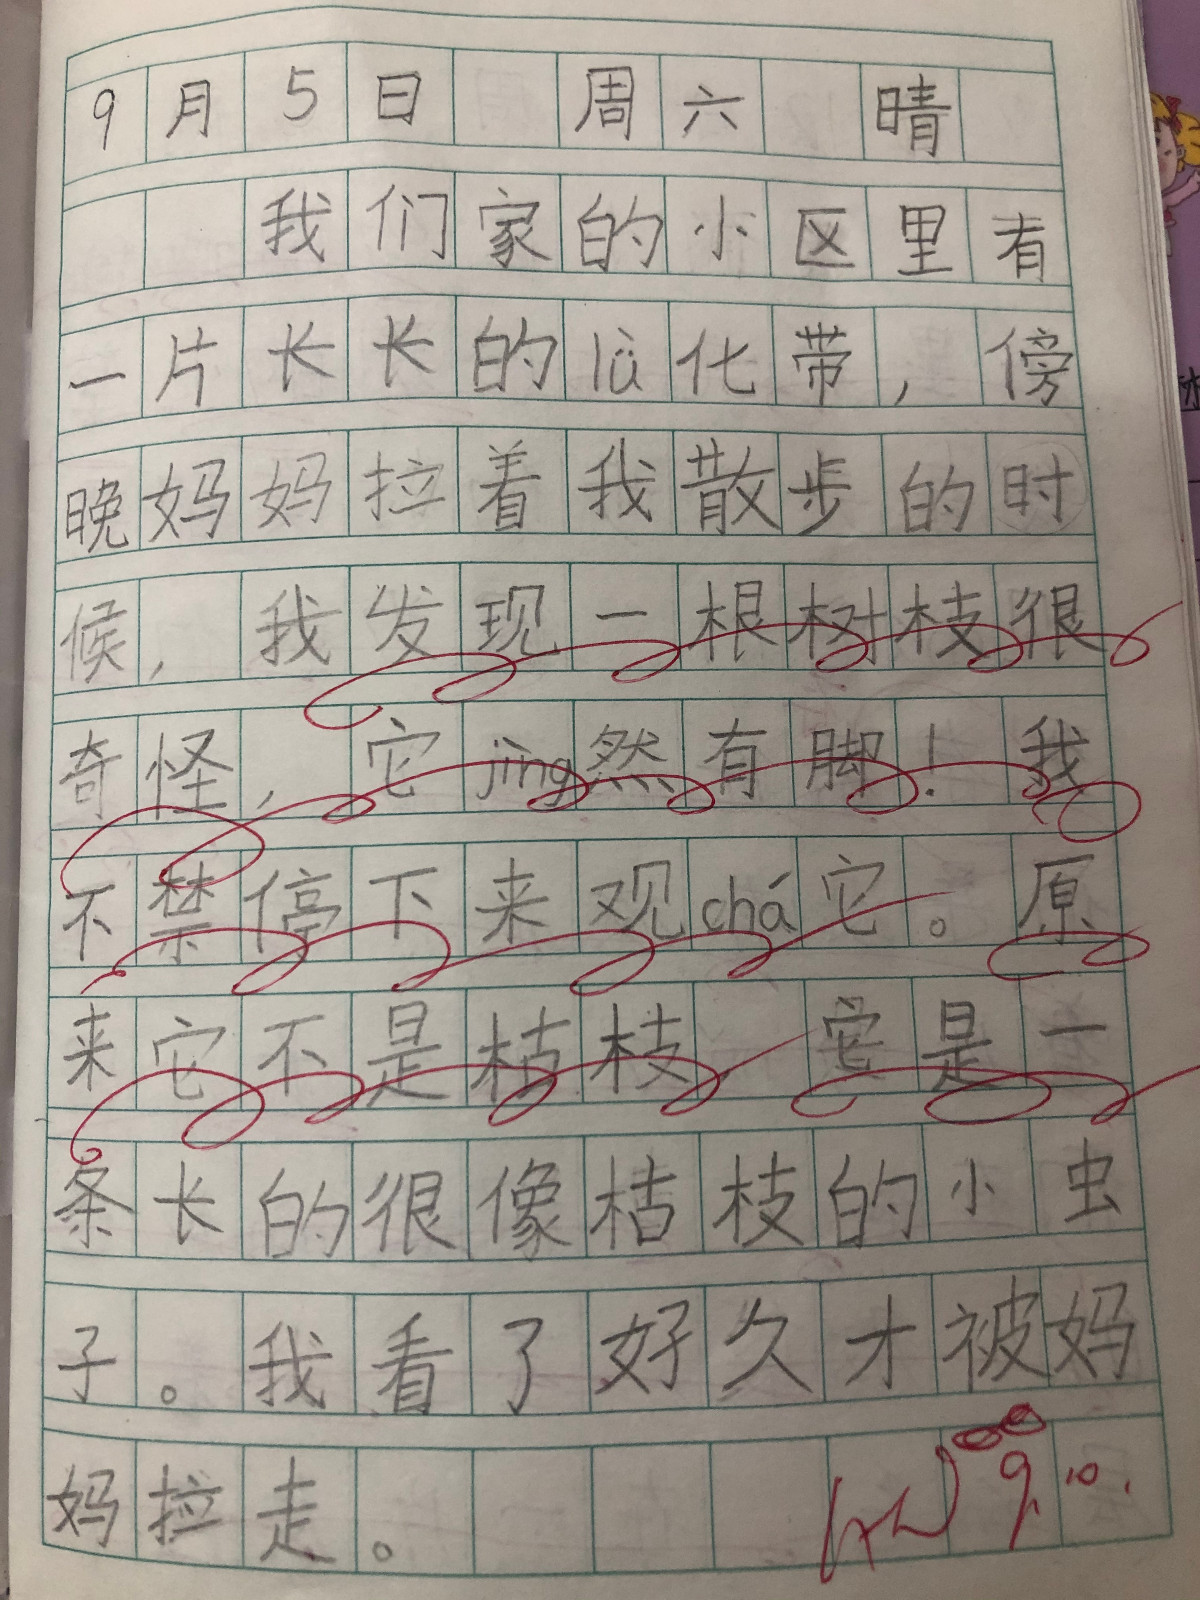 9月5日 周六 晴
我们家的小区里有
一片长长的lǜ化带，傍
晚妈妈拉着我散步的时
候，我发现一根树枝很
奇怪，它jìng然有脚！我
不禁停下来观chá它。原
来它不是枯枝，它是一
条长的很像枯枝的小虫
子。我看了好久才被妈
妈拉走。
9.10.